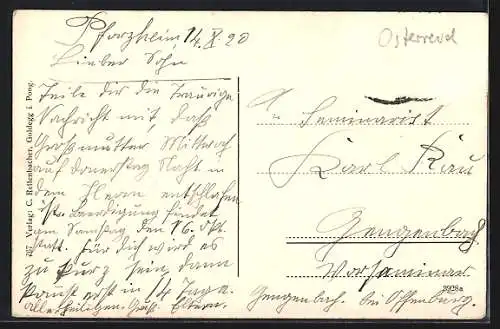 Pforzheim 14. X 20
Lieber Sohn
Teile dir die Traurige
Nachricht mit, daß
Großmutter, Mittwoch
auf Donerstag Nacht in
dem Heren entschlafen
ist. Beerdigung findet
am Samstag den 16. Okt.
statt. Für dich wird es
zu kurz sein, dann
kommst erst in 14 Tage.
Allerheiligen. Gruß Eltern.
Österreich
Seminarist
Karl Rau
Gengenbach
Vorseminar
Gengenbach. bei Offenburg.
3928a
787 Verlag: C. Rettenbacher, Goldegg i. Pong.